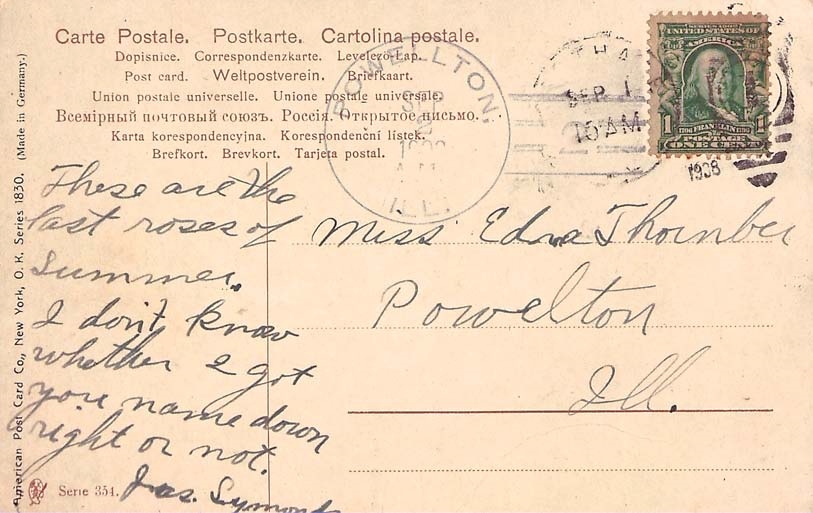 Carte Postale. Postkarte. Cartolina postale.
Dopisnice. Correspondenzkarte. Levelező-Lap.
Post card. Weltpostverein. Briefkaart.
Union postale universelle. Unione postale universale.
Всемірный почтовый союзъ. Россія. Открытое письмо.
Karta korespondencyjna. Korespondenční lístek.
Brefkort. Brevkort. Tarjeta postal.
POWELLTON,
ILL.
SEP 1
15 AM
1908
SERIES 1902
UNITED STATES OF
AMERICA
1 FRANKLIN 1
POSTAGE
ONE CENT
These are the
last roses of
Summer.
I don't know
whether I got
you name down
right or not.
Jas. Symont
Miss Edna Thornber
Powelton
Ill.
American Post Card Co., New York, O. K. Series 1830. (Made in Germany.)
Serie 354.